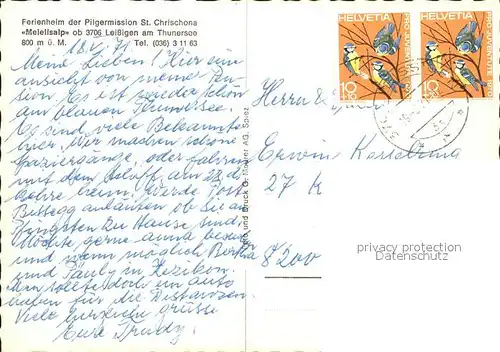 Ferienheim der Pilgermission St. Chrischona
«Meielisalp» ob 3706 Leißigen am Thunersee
800 m ü. M. Tel. (036) 3 11 63
Meine Lieben! Hier eine
ansicht von meiner Pen
sion. Es ist wieder schön
am blauen Thunersee.
Es sind viele Bekannte
hier. Wir machen schöne
Spaziergänge, oder fahren
mit dem Schiff. am 28. ds
kehre heim, werde
anläuten ob Sie an
Pfingsten zu Hause sind.
Möchte gerne anna besuchen
und wenn möglich Bertha
und Pauly in
haben für die Distanzen.
Viele herzliche grüsse
Eure Trudy!
Foto und Druck G. Maurer AG, Spiez
HELVETIA
10
PRO JUVENTUTE
HELVETIA
10
PRO JUVENTUTE
Herrn &
Erwin
27 K
8200
privacy protection
Datenschutz